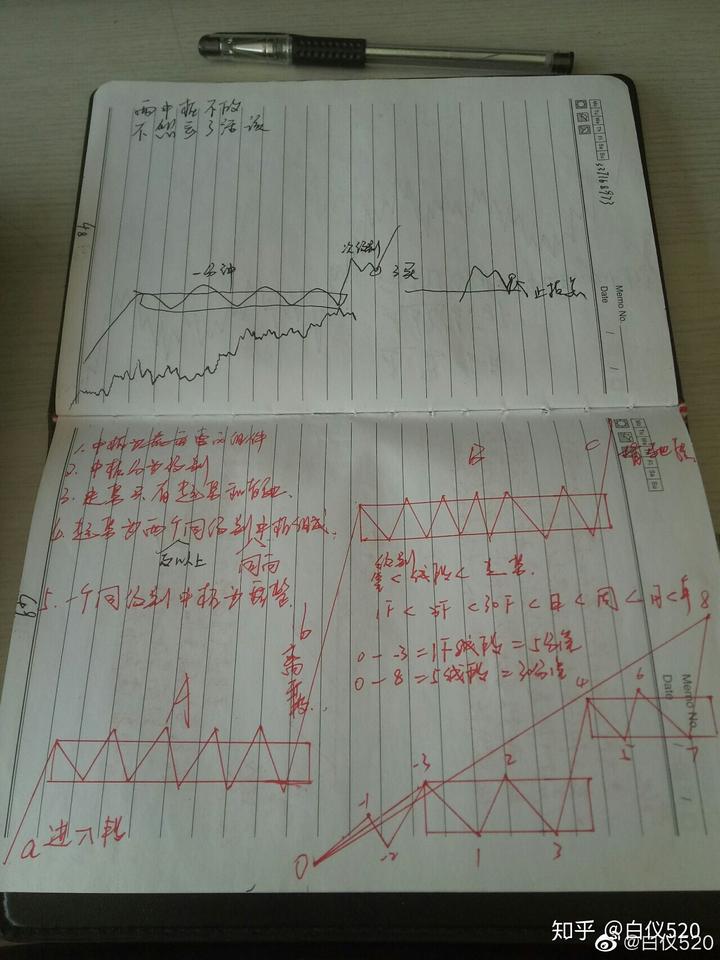 两中枢不破
不然亏了活该
Memo No.
Date
一分钟
次级别
3买
止损点
48
1. 中枢
2. 中枢分为级别
3. 走势只有趋势和盘整
4. 趋势为两个同级别中枢组成
2以上
同向
5. 一个同级别中枢为盘整
49
A
a进入段
b
离开段
B
C
级别
笔<线段<走势
1F<5F<30F<日<周<月<年
0 — -3 = 1F线段 = 5分笔
0 — 8 = 5线段 = 30分笔
0
-1
-2
-3
1
2
3
4
5
6
7
8
Memo No.
Date
知乎 @白仪520
@白仪520